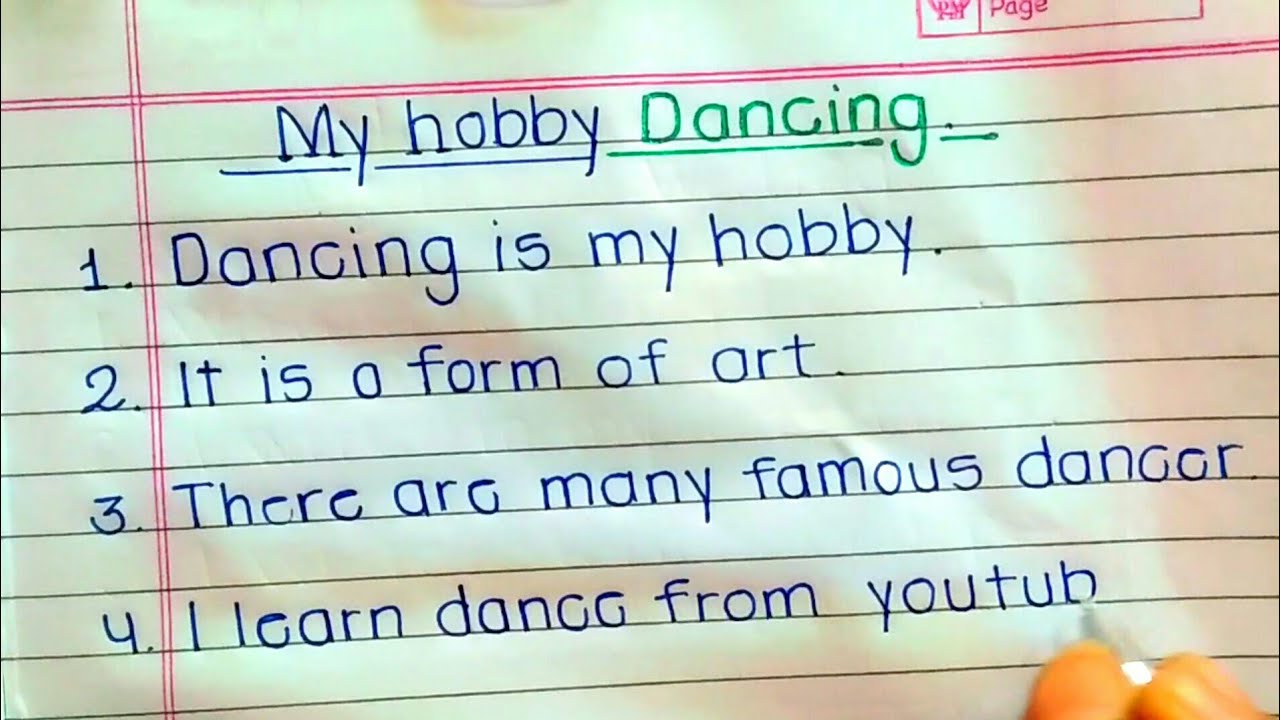 Page
My hobby Dancing.
1. Dancing is my hobby.
2. It is a form of art.
3. There are many famous dancer.
4. I learn dance from youtub